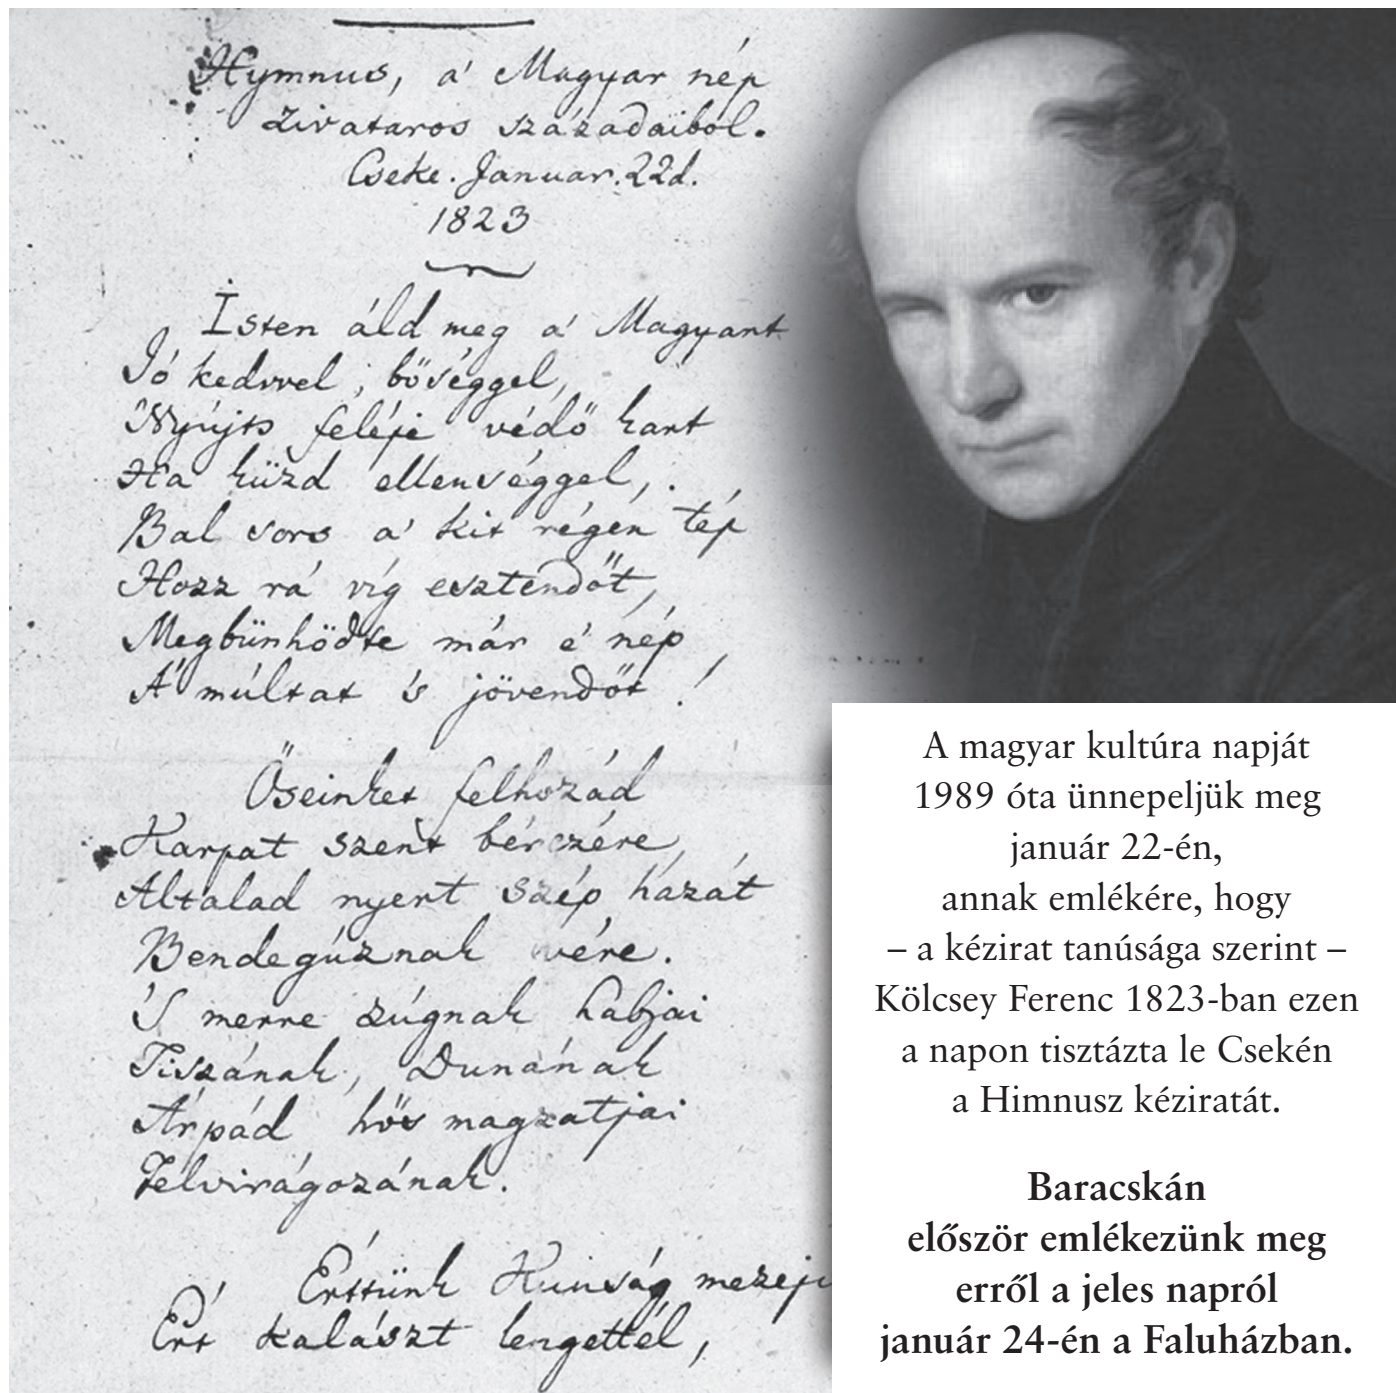 Hymnus, a' Magyar nép
zivataros századaiból.
Cseke. Januar. 22d.
1823
Isten áld meg a' Magyart
Jó kedvvel, bőséggel,
Nyújts feléje védő kart
Ha küzd ellenséggel,
Bal sors a' kit régen tép
Hozz rá víg esztendőt,
Megbünhödte már e' nép
A' múltat 's jövendőt!
Őseinket felhozád
Karpat szent bérczére,
Altalad nyert szép hazát
Bendegúznak vére.
'S merre zúgnak habjai
Tiszának, Dunának
Árpád hős magzatjai
Felvirágozának.
Értünk Kunság mezeji
Ért kalászt lengettél,
A magyar kultúra napját
1989 óta ünnepeljük meg
január 22-én,
annak emlékére, hogy
– a kézirat tanúsága szerint –
Kölcsey Ferenc 1823-ban ezen
a napon tisztázta le Csekén
a Himnusz kéziratát.
Baracskán
először emlékezünk meg
erről a jeles napról
január 24-én a Faluházban.